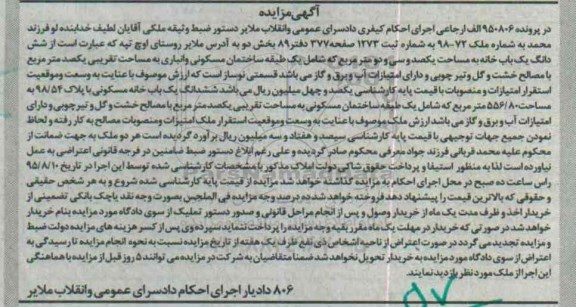 آگهی مزایده
در پرونده ۹۵۰۸۰۶ الف ارجاعی اجرای احکام کیفری دادسرای عمومی وانقلاب ملایر دستور ضبط وثیقه ملکی آقایان لطیف خدابنده لو فرزند
محمد به شماره ملک ۷۲-۹۸ به شماره ثبت ۱۲۷۳ صفحه ۳۷۷ دفتر ۸۹ بخش دو به آدرس ملایر روستای اوچ تپه که عبارت است از شش
دانگ یک باب خانه به مساحت یکصد و سی و دو متر مربع که شامل یک طبقه ساختمان مسکونی وانباری به مساحت تقریبی یکصد متر مربع
با مصالح خشت و گل و تیر چوبی و دارای امتیازات آب و برق و گاز می باشد قسمتی نوساز است که ارزش موصوف با عنایت به وسعت وموقعیت
استقرار امتیازات و منصوبات با قیمت پایه کارشناسی یکصد و چهل میلیون ریال می باشد ششدانگ یک باب خانه مسکونی با پلاک ۹۸/۵۴ به
مساحت ۵۵۶/۸۰ متر مربع که شامل یک طبقه ساختمان مسکونی به مساحت تقریبی یکصد متر مربع با مصالح خشت و گل و تیر چوبی و دارای
امتیازات آب و برق و گاز می باشد ارزش ملک موصوف با عنایت به وسعت وموقعیت استقرار ملک امتیازات ومنصوبات مصالح به کار رفته و لحاظ
نمودن جمیع جهات توجیهی با قیمت پایه کارشناسی سیصد و هفتاد و سه میلیون ریال برآورد گردیده است هر دو ملک به جهت ضمانت از
محکوم علیه محمد قربانی فرزند جواد معرفی محکوم صادر گردیده و علی رغم ابلاغ دستور ضبط ضامنین در فرجه قانونی اعتراضی به عمل
نیاورده است لذا به منظور استیفا و پرداخت حقوق شاکی دولت املاک مذکور با مشخصات کارشناسی شده توسط این اجرا در تاریخ ۹۵/۸/۱۰
راس ساعت ده صبح در محل اجرای احکام به مزایده گذاشته خواهد شد مزایده از قیمت پایه کارشناسی شده شروع و به هر شخص حقیقی
و حقوقی که بالاترین قیمت را پیشنهاد دهد فروخته خواهد شد ده درصد وجه مزایده فی المجلس بصورت وجه نقد یا چک بانکی تضمینی از
خریدار اخذ و ظرف مدت یک ماه از خریدار وصول و پس از انجام مراحل قانونی و صدور دستور تملیک از سوی دادگاه مورد مزایده بنام خریدار
خواهد شد در صورتی که خریدار در مهلت یک ماه مقرر بقیه وجه مزایده را پرداخت ننماید سپرده وی پس از کسر هزینه های مزایده دولت ضبط
و مزایده تجدید می گردد در صورت اعتراض از ناحیه اشخاص ذی نفع ظرف یک هفته از تاریخ مزایده نسبت به نحوه انجام مزایده تا رسیدگی به
اعتراض از سوی دادگاه مورد مزایده به خریدار تحویل نخواهد شد ضمنا متقاضیان به شرکت در مزایده می توانند ۵ روز قبل از مزایده با هماهنگی
این اجرا از ملک مورد نظر بازدید نمایند.
۸۰۶ دادیار اجرای احکام دادسرای عمومی وانقلاب ملایر